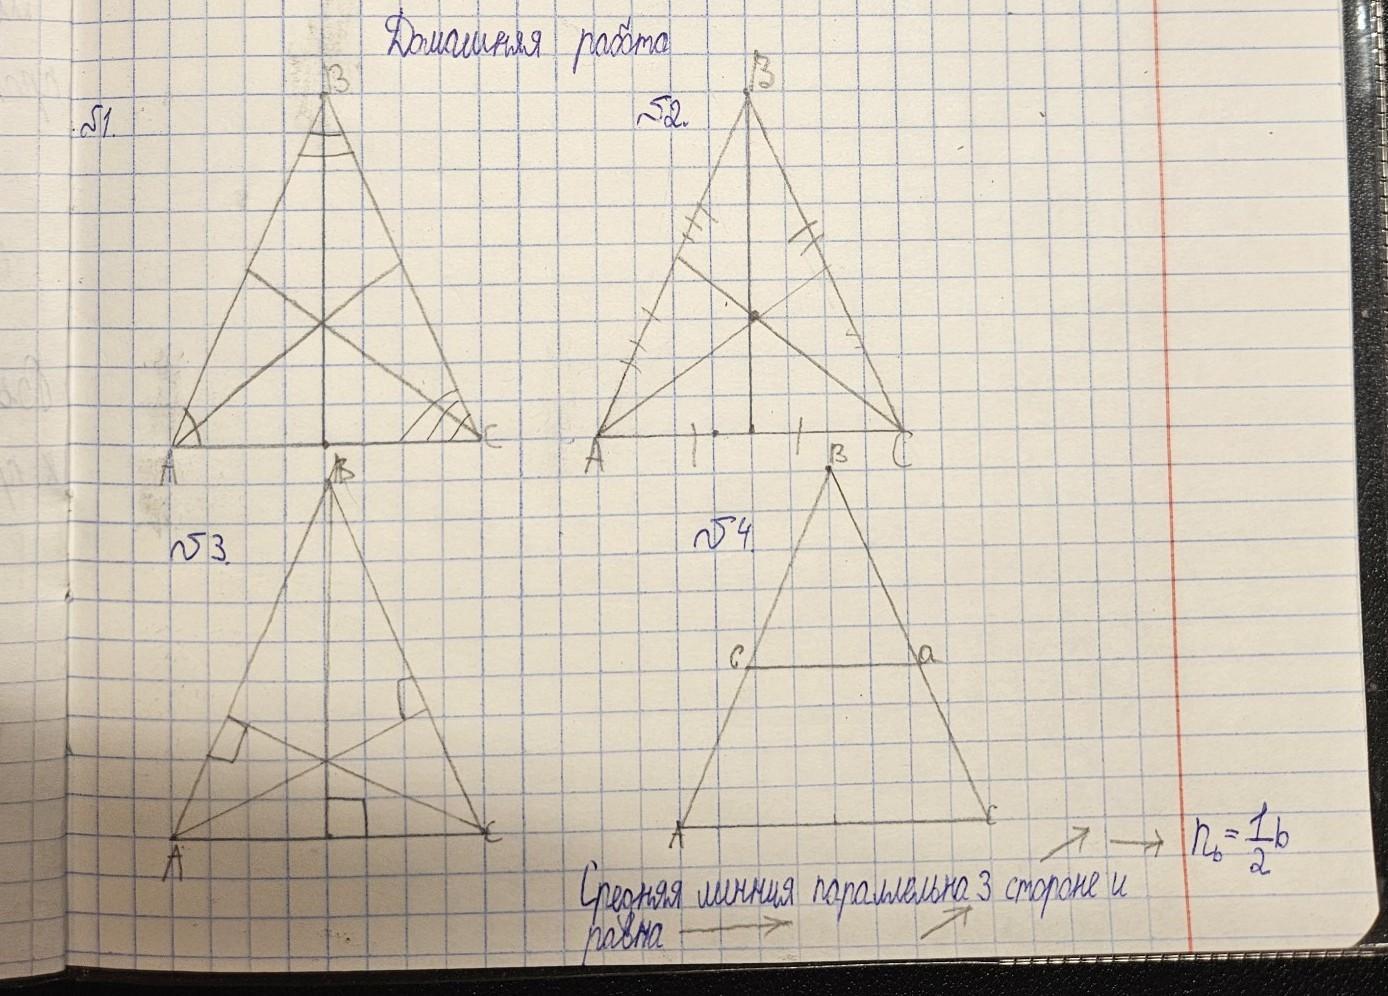 Домашняя работа
№1.
B
A
C
№2.
B
A
C
№3.
B
A
C
№4.
B
C
a
A
C
n_b = 1/2 b
Средняя линния параллельна 3 стороне и
равна